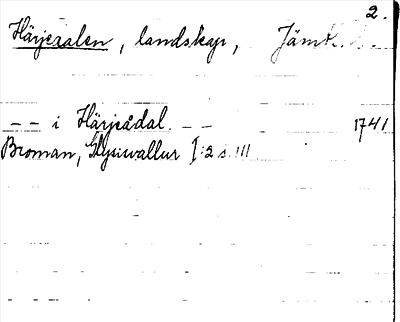 2.
Härjedalen, landskap, Jämt.
– – i Härjeådal. – – 1741
Broman, Glysisvallur I:2 s. 111